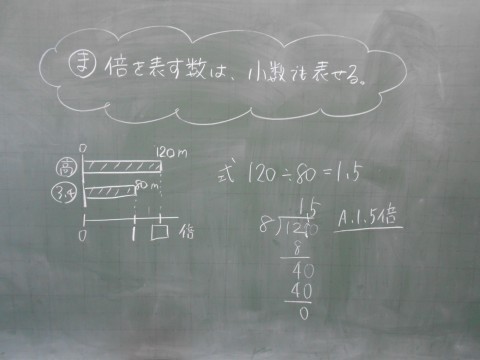 ま 倍を表す数は、小数でも表せる。
0
120m
高
3.4
80m
0 1 □ 倍
式 120÷80=1.5
1.5
8)120
8
40
40
0
A.1.5倍